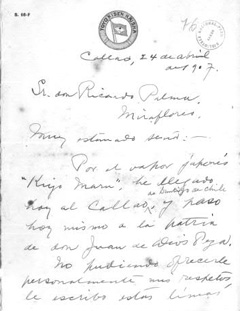 S. 10-F
76
Callao, 24 de abril
de 1907.
Sr. don Ricardo Palma,
Miraflores.
Muy estimado señor:—
Por el vapor japonés
"Kiyo Maru", he llegado
hoy al Callao, y paso
hoy mismo a la patria
de don Juan de Dios Peza.
No pudiendo ofrecerle
personalmente mis respetos,
le escribo estas líneas